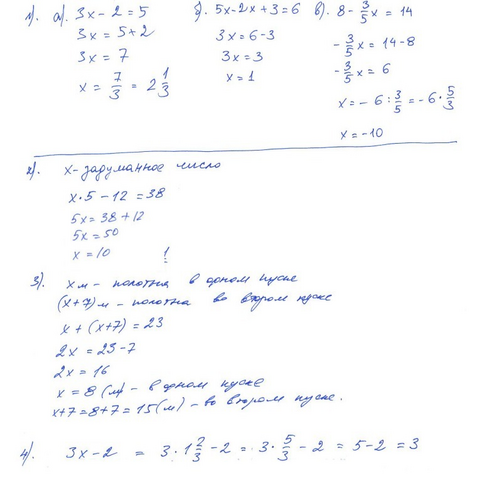 1). а) 3x - 2 = 5 б). 5x - 2x + 3 = 6 в). 8 - 3/5 x = 14
3x = 5 + 2 3x = 6 - 3 - 3/5 x = 14 - 8
3x = 7 3x = 3 - 3/5 x = 6
x = 7/3 = 2 1/3 x = 1 x = - 6 : 3/5 = - 6 · 5/3
x = -10
2). x - задуманное число
x · 5 - 12 = 38
5x = 38 + 12
5x = 50
x = 10 !
3). x м - полотна в одном куске
(x+7) м - полотна во втором куске
x + (x+7) = 23
2x = 23 - 7
2x = 16
x = 8 (м) - в одном куске
x+7 = 8+7 = 15 (м) - во втором куске.
4). 3x - 2 = 3 · 1 2/3 - 2 = 3 · 5/3 - 2 = 5 - 2 = 3